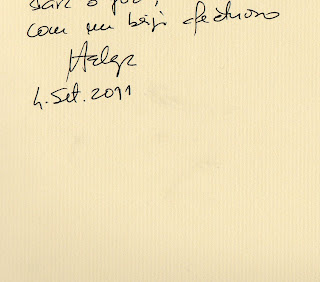 com um beijo afectuoso
Helga
4. Set. 2011